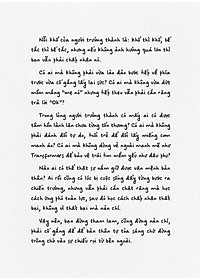 Nỗi khổ của người trưởng thành là: khổ thì khổ, bế
tắc thì bế tắc, nhưng nếu không ảnh hưởng quá lớn thì
bạn vẫn phải chấp nhận nó.
Có ai mà không phải vừa lảo đảo bước tiếp về phía
trước vừa cố gắng lấy lại sức? Có ai mà không vừa dứt
mồm mắng "mẹ nó" nhưng tiếp theo vẫn phải cắn răng
trả lời "Ok"?
Trong lòng người trưởng thành có mấy ai có được
tấm hồn lành lặn chưa từng tổn thương? Có ai mà không
phải đánh đổi tự do, tuổi trẻ để đổi lấy miếng cơm
manh áo? Có ai mà không dùng vẻ ngoài mạnh mẽ như
Transformers để bảo vệ trái tim mềm yếu như đậu phụ?
Nào ai có thể thật sự nắm giữ được vận mệnh bản
thân? Ai rồi cũng có lúc bị cuộc sống đẩy từng bước ra
chiến trường, nhưng vẫn phải cắn chặt răng mà học
cách ứng phó toàn lực, sau đó học cách chấp nhận thất
bại, không vì thất bại mà nản chí.
Vậy nên, bạn đừng tham lam, cũng đừng nản chí,
phải cố gắng để để bản thân tự tỏa sáng chứ đừng
trông chờ vào sự chiếu rọi từ bên ngoài.